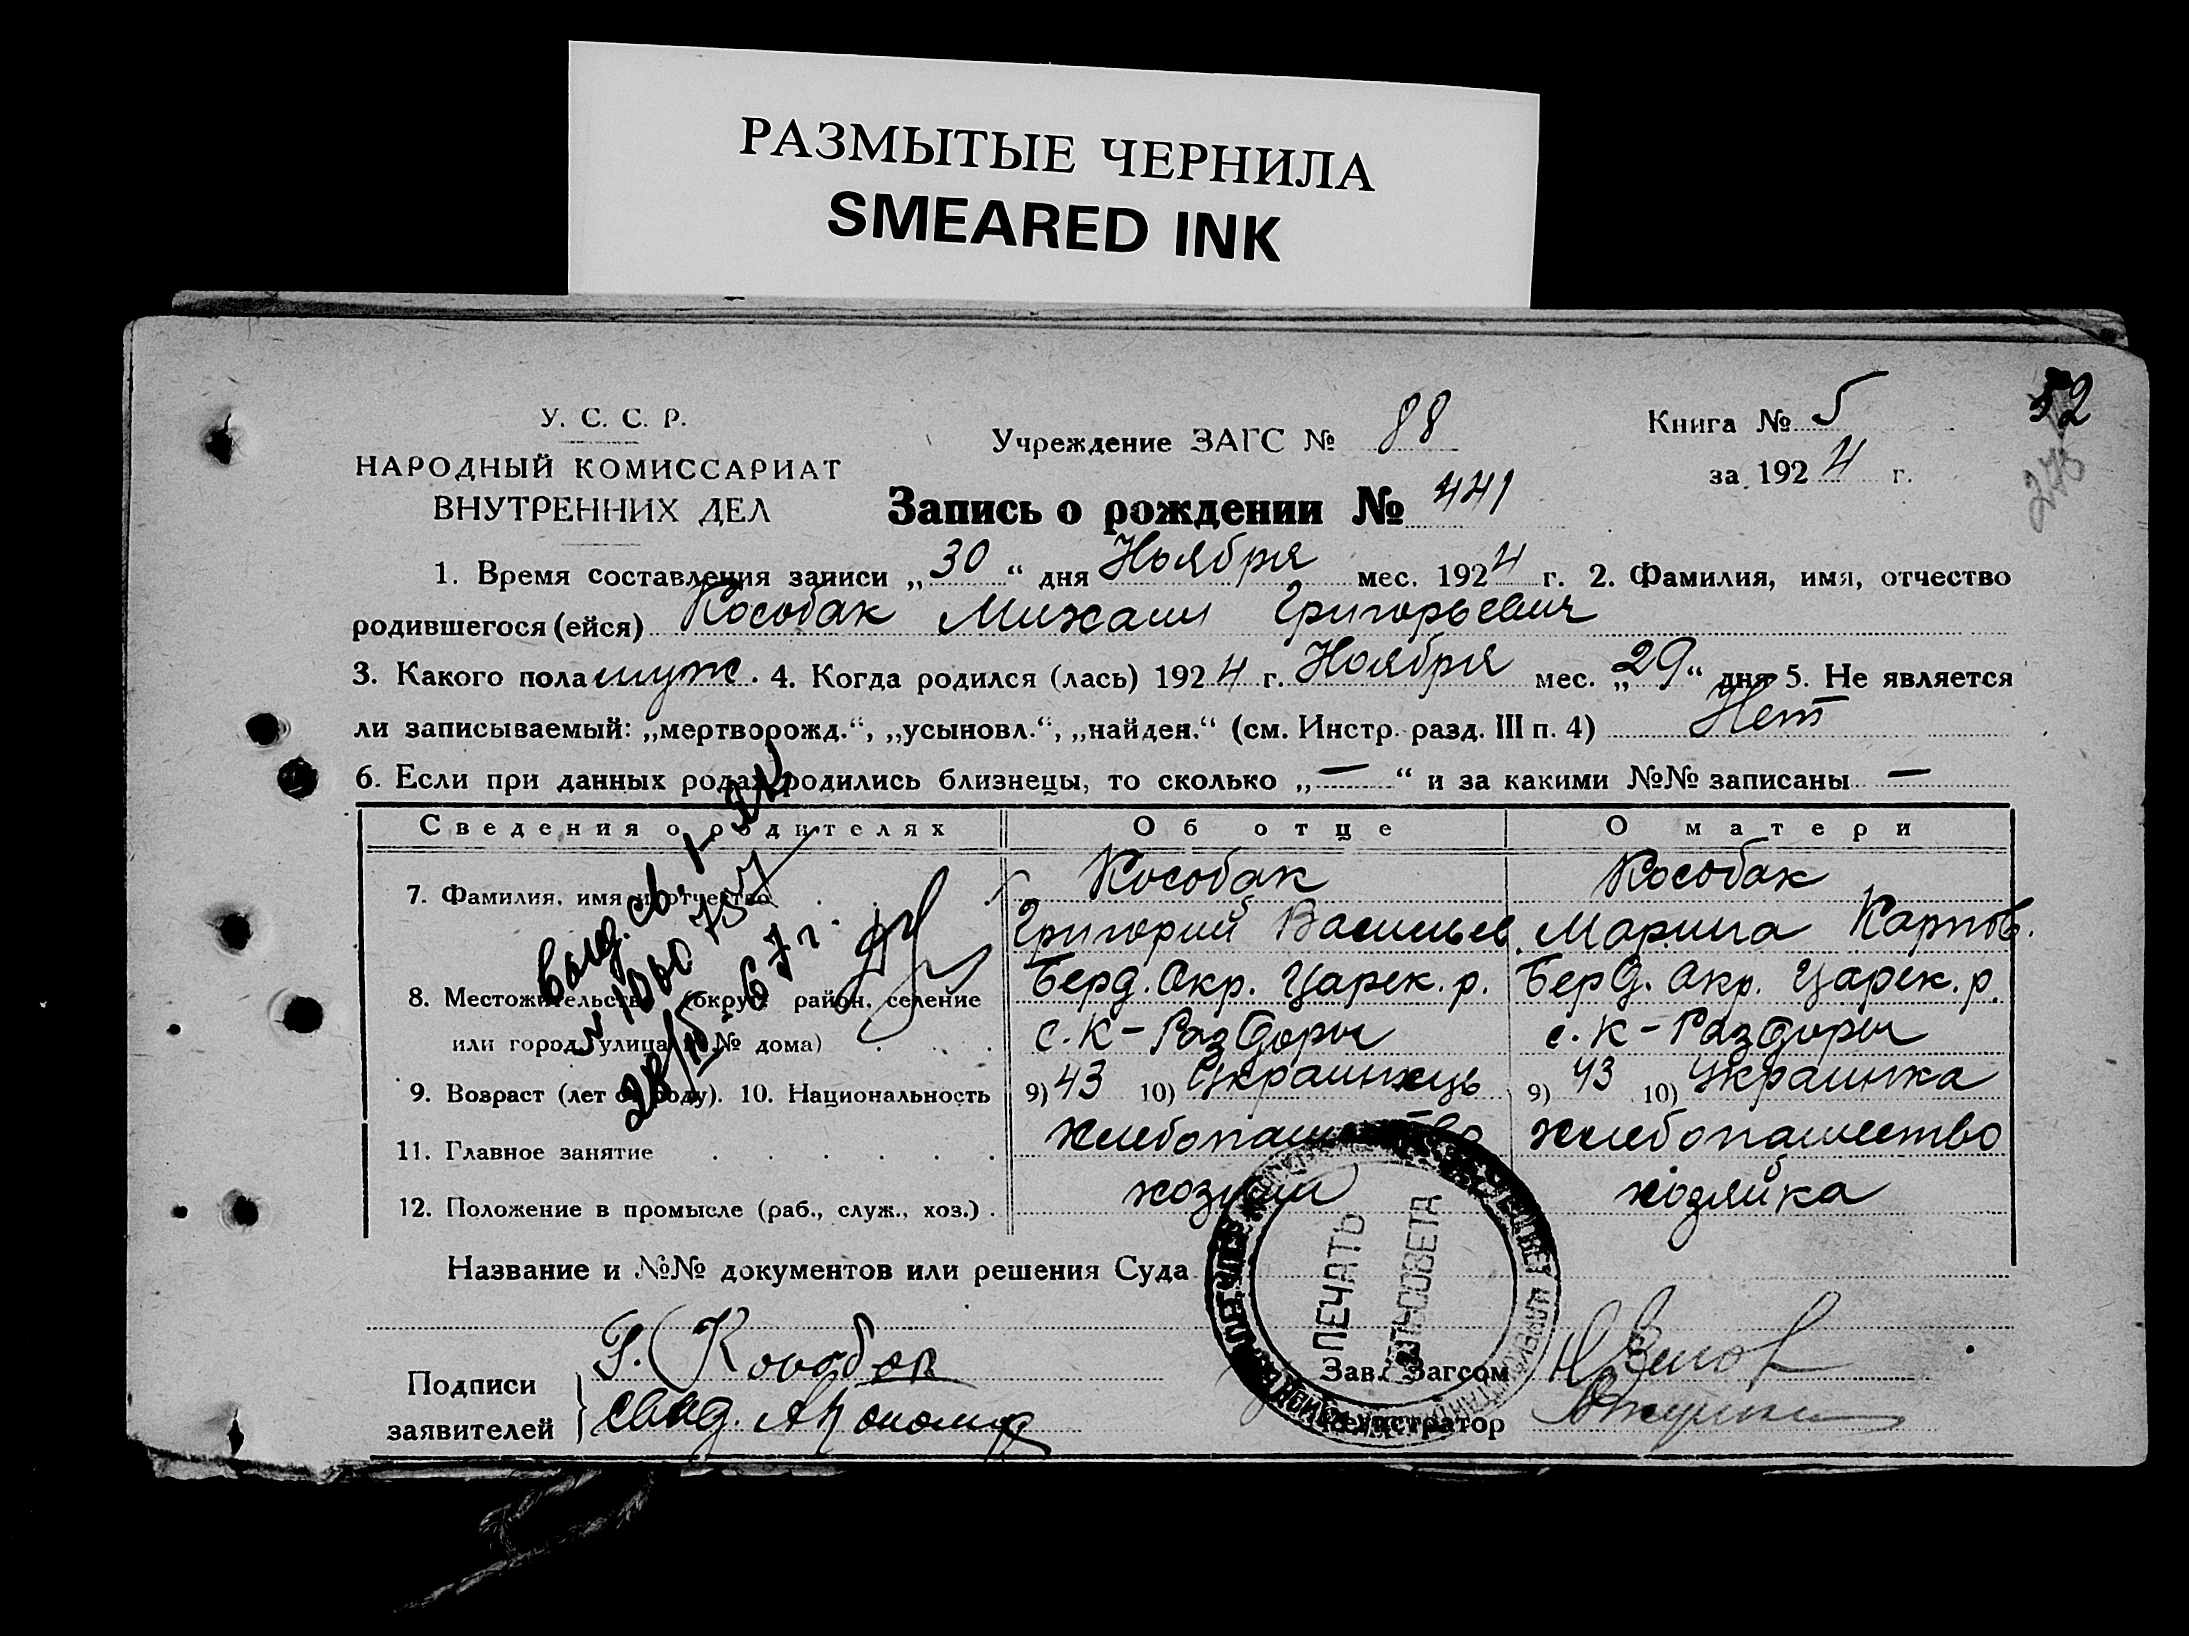 РАЗМЫТЫЕ ЧЕРНИЛА
SMEARED INK
У. С. С. Р.
НАРОДНЫЙ КОМИССАРИАТ
ВНУТРЕННИХ ДЕЛ
Учреждение ЗАГС № 88
Книга № 5
за 1924 г.
52
Запись о рождении № 441
1. Время составления записи „30“ дня Ноября мес. 1924 г. 2. Фамилия, имя, отчество
родившегося (ейся) Кособак Михаил Григорьевич
3. Какого пола муж. 4. Когда родился (лась) 1924 г. Ноября мес. „29“ дня 5. Не является
ли записываемый: „мертворожд.“, „усыновл.“, „найден.“ (см. Инстр. разд. III п. 4) Нет
6. Если при данных родах родились близнецы, то сколько „—“ и за какими №№ записаны —
Сведения о родителях Об отце О матери
7. Фамилия, имя и отчество Кособак Кособак
Григорий Васильев. Марина Карпов.
8. Местожительство (округ, район, селение Берд. Окр. Царек. р. Берд. Окр. Царек. р.
или город, улица и № дома) с. К-Раздоры с. К-Раздоры
9. Возраст (лет от роду). 10. Национальность 9) 43 10) Украинець 9) 43 10) Украинка
11. Главное занятие Хлебопашество Хлебопашество
12. Положение в промысле (раб., служ., хоз.) хозяин хозяйка
выд. св. 1-
28/ 67 г.
Название и №№ документов или решения Суда
ПЕЧАТЬ
СЕЛЬСОВЕТА
Подписи
заявителей
Г. Кособак
Зав. Загсом
Регистратор